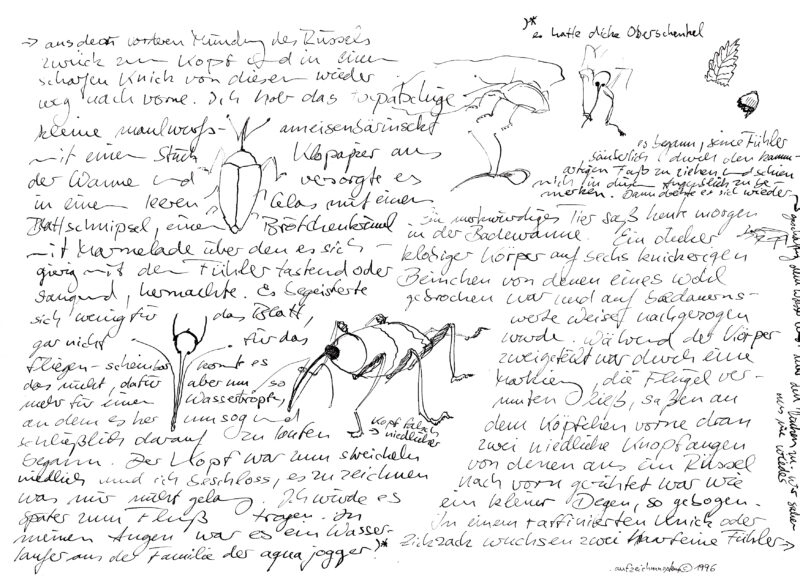 → aus deren vorderen Mündung des Rüssels
zurück zum Kopf und in einem
scharfen Knick von diesem wieder
weg nach vorne. Ich hob das
kleine maulwurfs- ameisenbärinsekt
mit einem Stück Klopapier aus
der Wanne und versorgte es
in einem leeren Glas mit einem
Blattschnipsel, einem Brötchenkrümel
mit Marmelade über den es sich
gierig mit den Fühler tastend oder
saugend, hermachte. Es begeisterte
sich wenig für das Blatt,
gar nicht für das
Fliegen- scheinbar konnt es
das nicht, dafür aber um so
mehr für einen Wassertropfen,
an dem es her umsog und
schließlich darauf zu laufen
begann. Der Kopf war zum streicheln
niedlich und ich beschloss, es zu zeichnen
was mir nicht gelang. Ich würde es
später zum Fluß tragen. In
meinen Augen war es ein Wasser-
läufer aus der Familie der aqua jogger!)*
Kopf falsch
→ niedlicher
)*
es hatte dicke Oberschenkel
es begann, seine Fühler
säuberlich durch den kamm-
artigen Fuß zu ziehen und schien
mich in diesem Augenblick zu be-
merken. Dann drehte es sich wieder
Ein merkwürdiges Tier saß heute morgen
in der Badewanne. Ein dicker
klobiger Körper auf sechs knickerigen
Beinchen von denen eines wohl
gebrochen war und auf bedauerns-
werte Weise nachgezogen
wurde. Während der Körper
zweigeteilt war durch eine
Markierung, die Flügel ver-
muten ließ, saßen an
dem Köpfchen vorne dran
zwei niedliche Knopfaugen
von denen aus ein Rüssel
nach vorn gerichtet war wie
ein kleiner Degen, so gebogen.
In einem raffinierten Knick oder
Zickzack wuchsen zwei haarfeine Fühler →
aufzeichnungen © 1996